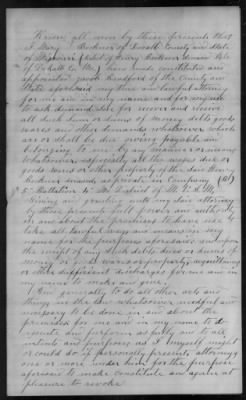 Know all men by these presents that
I Mary Buckner of Dekalb County and State
of Missouri (widow of Henry Buckner deceased late
of Dekalb Co Mo) have made constituted and
appointed Jacob Bradford of the County and
State aforesaid my true and lawful attorney
for me and in my name and for my use to
ask demand sue for recover and receive
all such sum or sums of money debts goods
wares and other demands whatsoever which
are or shall be due owing payable and
belonging to me by any manner or means
whatsoever especially all the wages due or
goods wares or other property of the said Henry
Buckner deceased as private in Company
5 Battalion Mo
Giving and granting unto my said attorney
by these presents full power and authority
in and about the premises to have use &
take all lawful ways and means in my
name for the purposes aforesaid and upon
the receipt of any such debts dues or sums of
money or goods wares or property acquittances
or other sufficient discharges for me and in
my name to make and give
And generally to do all other acts and
things in the law whatsoever needful and
necessary to be done in and about the
premises for me and in my name to do
execute and perform as fully and to all
intents and purposes as I myself might
or could do if personally present attorneys
one or more under him for the purpose
aforesaid to make constitute and again at
pleasure to revoke